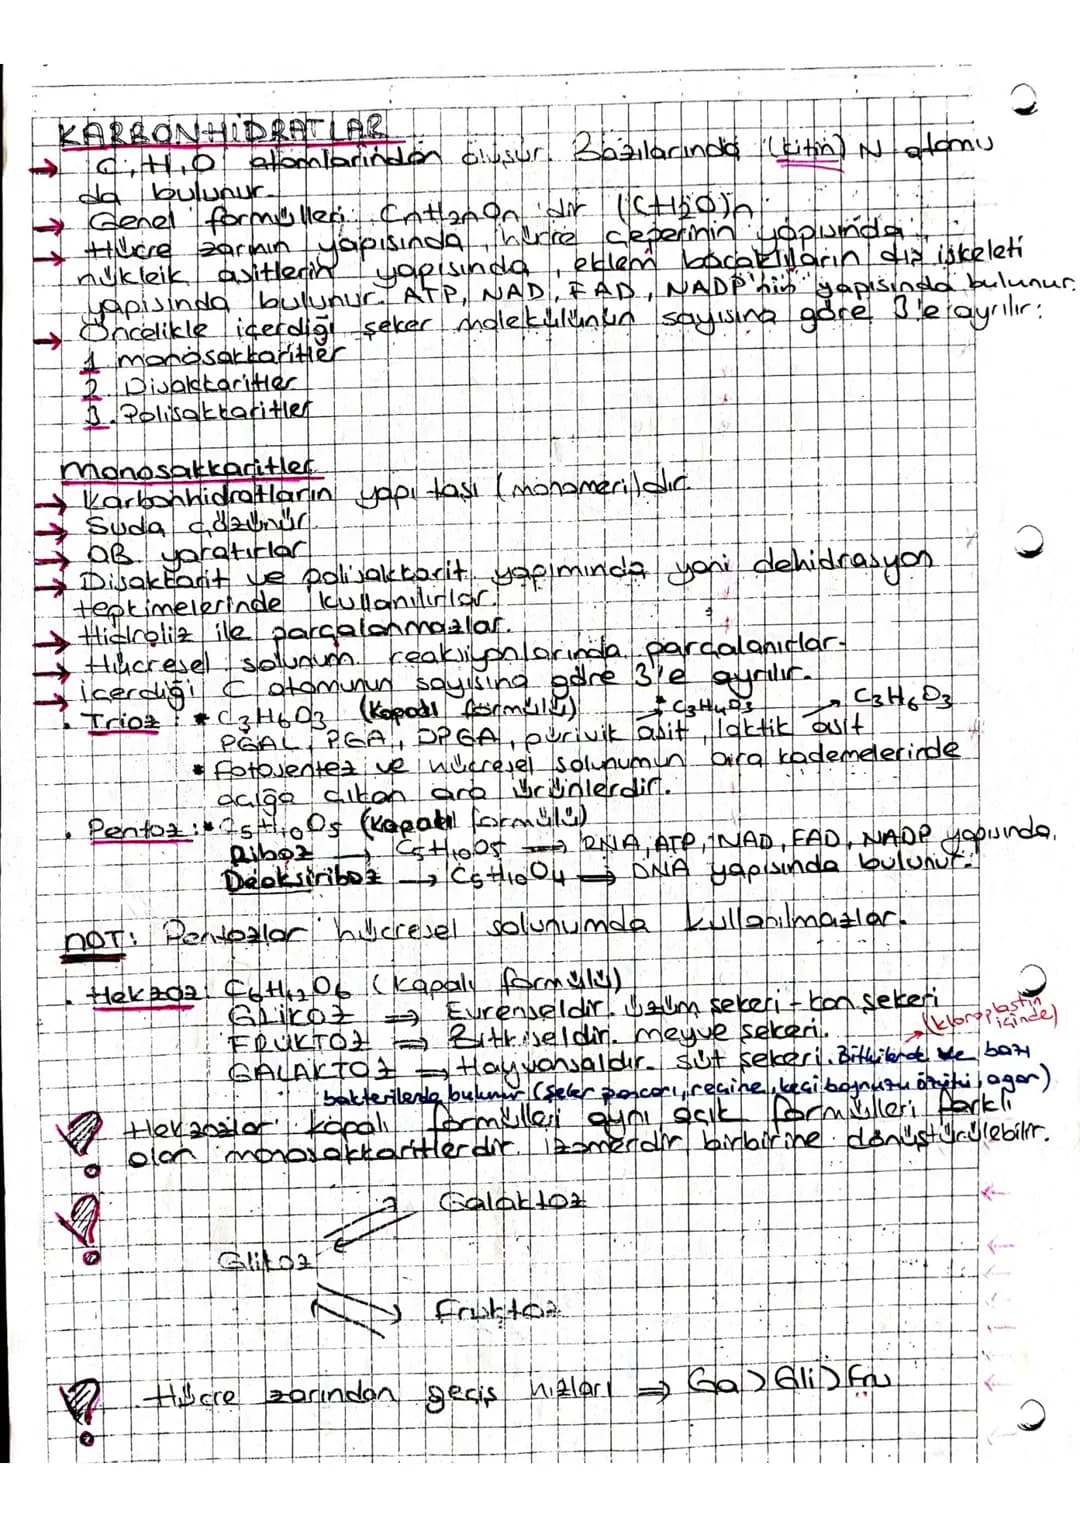 KARBONHİDRATLAR
→ C, H, O atomlarından oluşur. Bazılarında (kitin) N atomu
da bulunur.
→ Genel formülleri CnH2nOn 'dir (CH2O)n
→ Hücre zarının yapısında, hücre çeperinin yapısında,
nükleik asitlerin yapısında, eklem bacaklıların dış iskeleti
yapısında bulunur. ATP, NAD, FAD, NADP'nin yapısında bulunur.
→ Öncelikle içerdiği şeker molekülünün sayısına göre 3'e ayrılır:
1. monosakkaritler
2. Disakkaritler
3. Polisakkaritler
Monosakkaritler
→ Karbonhidratların yapı taşı (monomeri)dir.
→ Suda çözünür.
→ OB yaratırlar
→ Disakkarit ve polisakkarit yapımında yani dehidrasyon
tepkimelerinde kullanılırlar.
→ Hidroliz ile parçalanmazlar.
→ Hücresel solunum reaksiyonlarında parçalanırlar.
→ içerdiği C atomunun sayısına göre 3'e ayrılır.
• Trioz : * C3H6O3 (Kapalı formülü) * C3H4O3 → C3H6O3
PGAL, PGA, DPGA, pürivik asit, laktik asit
* Fotosentez ve hücresel solunumun bira kademelerinde
açığa çıkan ara ürünlerdir.
• Pentoz : * C5H10O5 (kapalı formülü)
Riboz → C5H10O5 → RNA, ATP, NAD, FAD, NADP yapısında,
Deoksiriboz → C5H10O4 → DNA yapısında bulunur.
NOT: Pentozlar hücresel solunumda kullanılmazlar.
• Hekzoz: C6H12O6 (kapalı formülü)
GLİKOZ ⇒ Evrenseldir. Üzüm şekeri - kan şekeri
FRUKTOZ ⇒ Bitkiseldir. meyve şekeri. (kloroplastın içinde)
GALAKTOZ ⇒ Hayvansaldır. süt şekeri. Bitkilerde ve bazı
bakterilerde bulunur (şeker pancarı, reçine, keçi boynuzu özütü, agar)
Hekzozlar kapalı formülleri aynı açık formülleri farklı
olan monosakkaritlerdir. izomerdir birbirine dönüştürülebilir.
Galaktoz
Glikoz
Fruktoz
Hücre zarından geçiş hızları ⇒ Ga > Gli > Fru